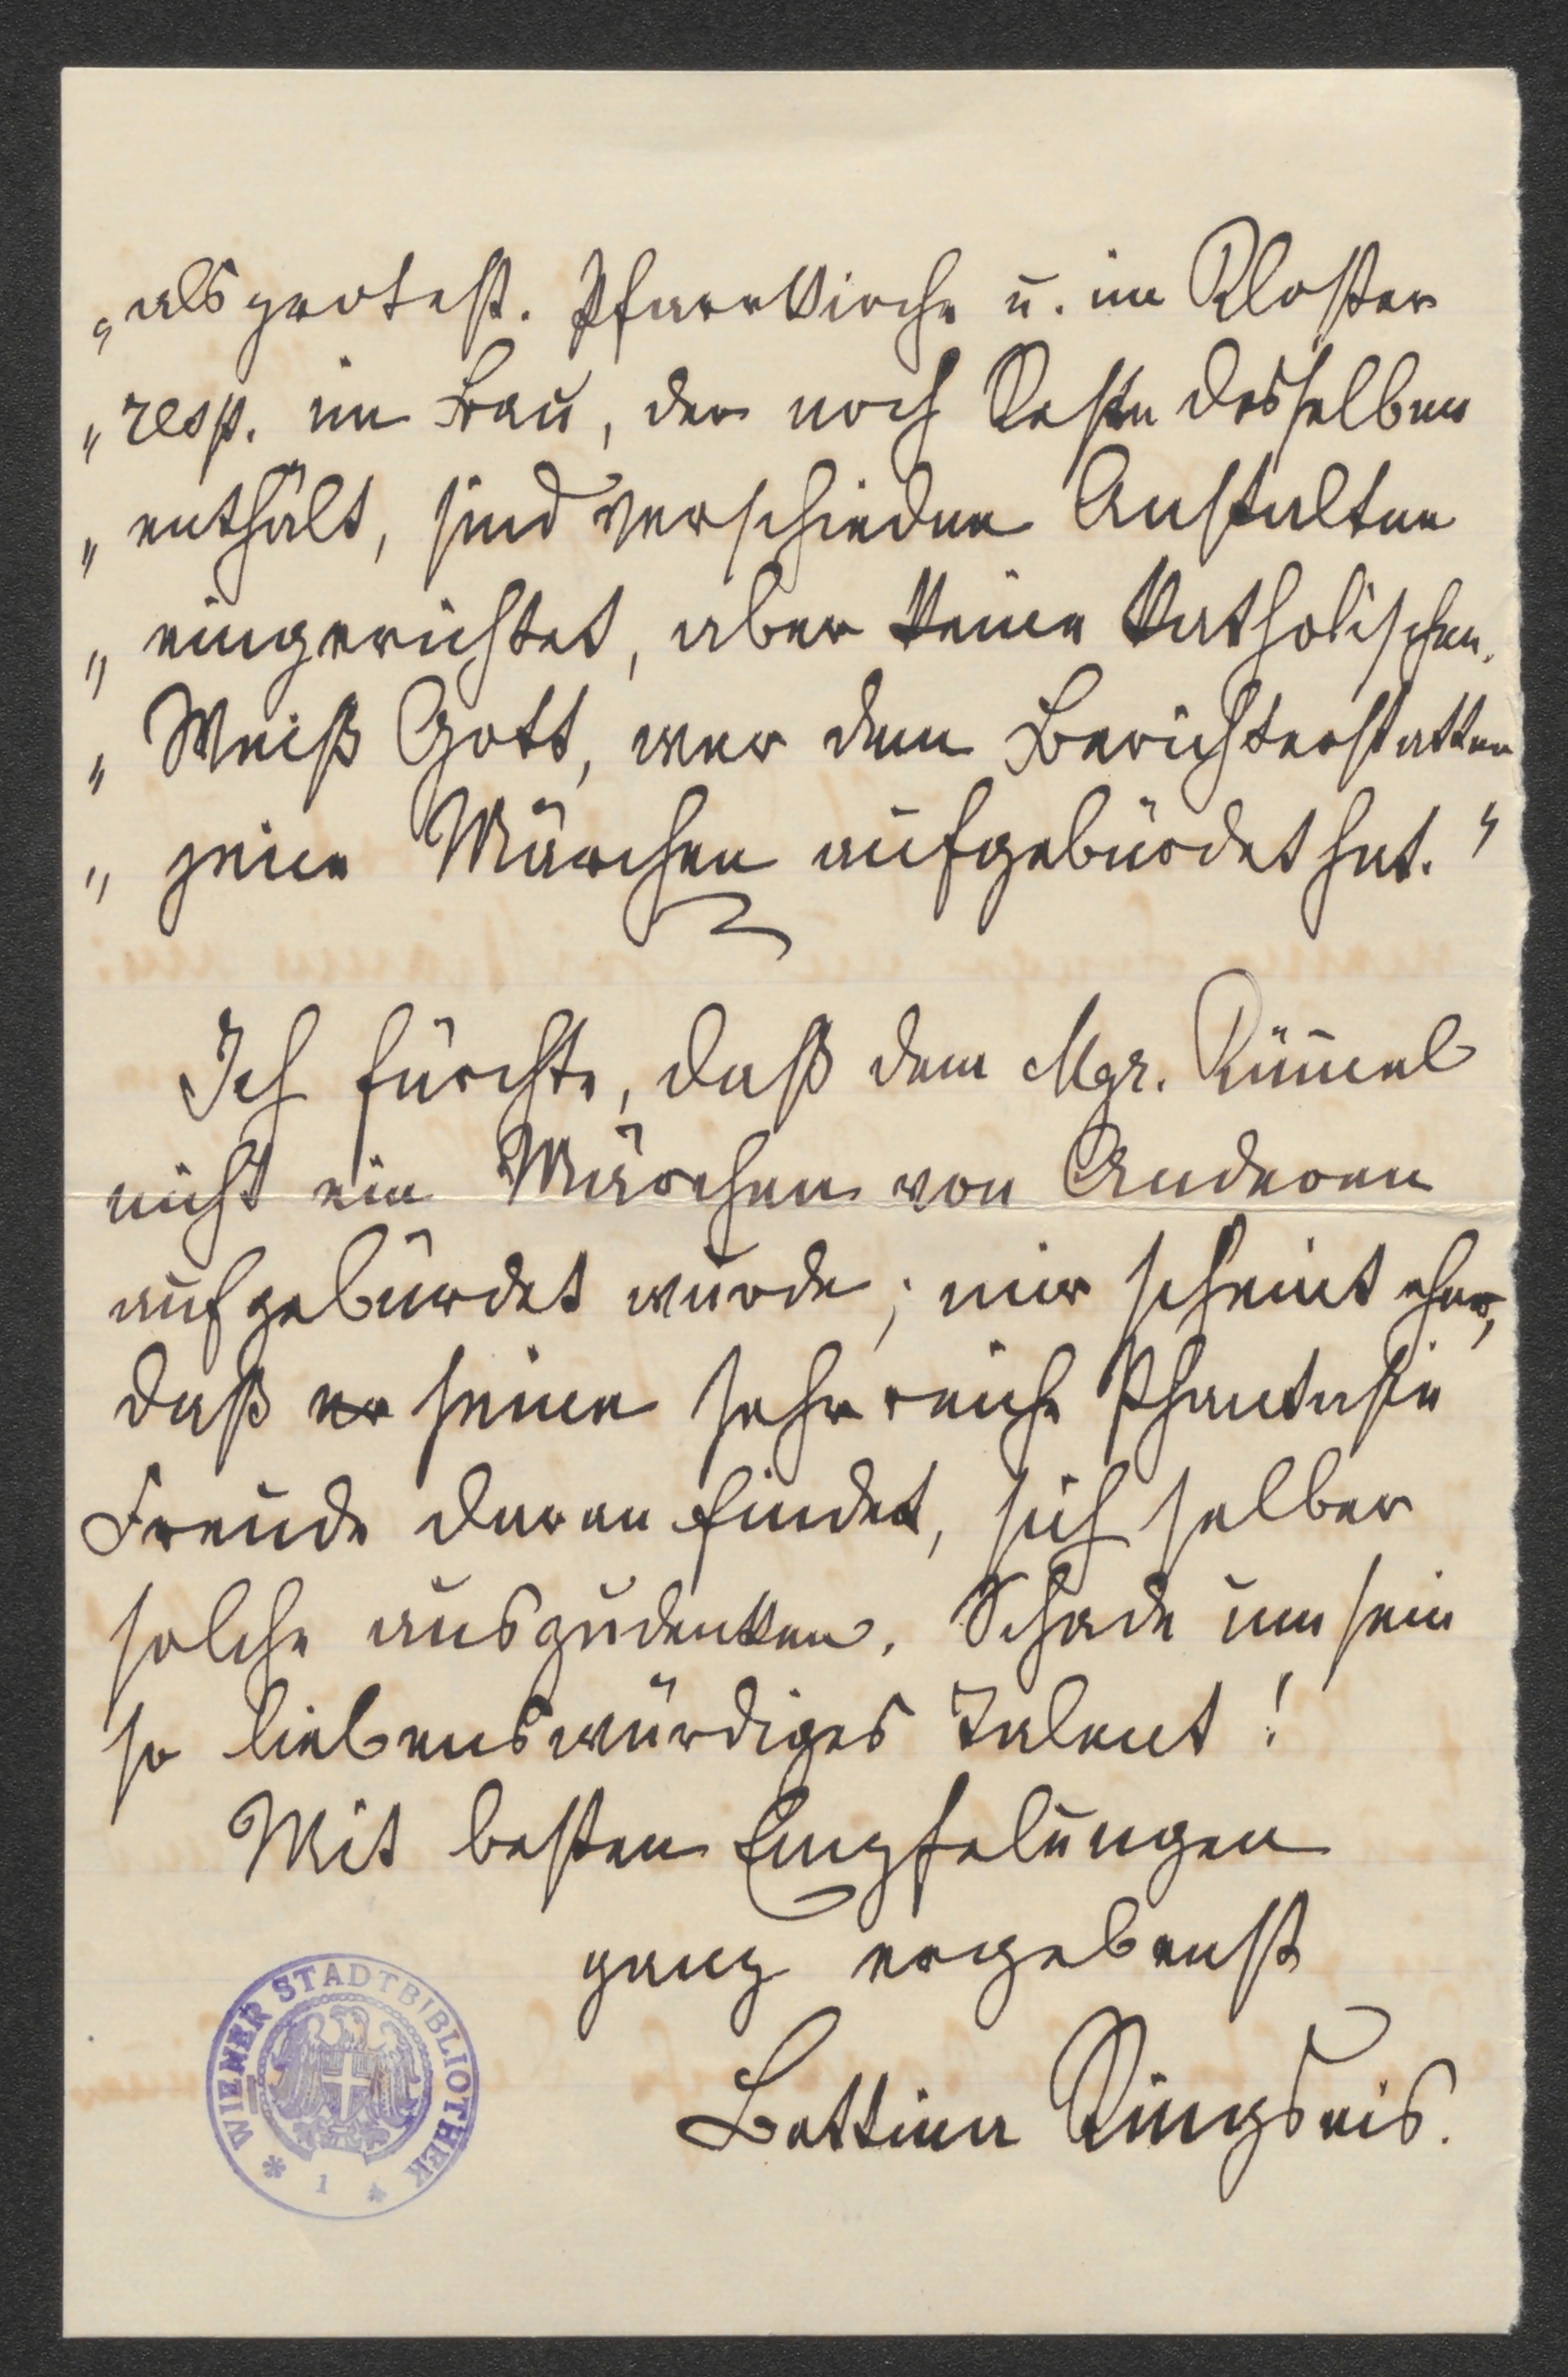 „als protest. Pfarrkirche u. im Kloster
„resp. im Bau, der noch Reste desselben
„enthält, sind verschiedene Anstalten
„eingerichtet, aber keine katholischen.
„Weiß Gott, wer dem Berichterstatter
„jene Märchen aufgebürdet hat."
Ich fürchte, daß dem Mgr. Rüm̄el
nicht ein Märchen von Anderen
aufgebürdet wurde; mir scheint eher,
daß er seine sehr reiche Phantasie
Freude daran findet, sich selber
solche auszudenken. Schade um sein
so liebenswürdiges Talent!
Mit besten Empfelungen
ganz ergebenst
Bettina Ringseis.
WIENER STADTBIBLIOTHEK
* 1 *